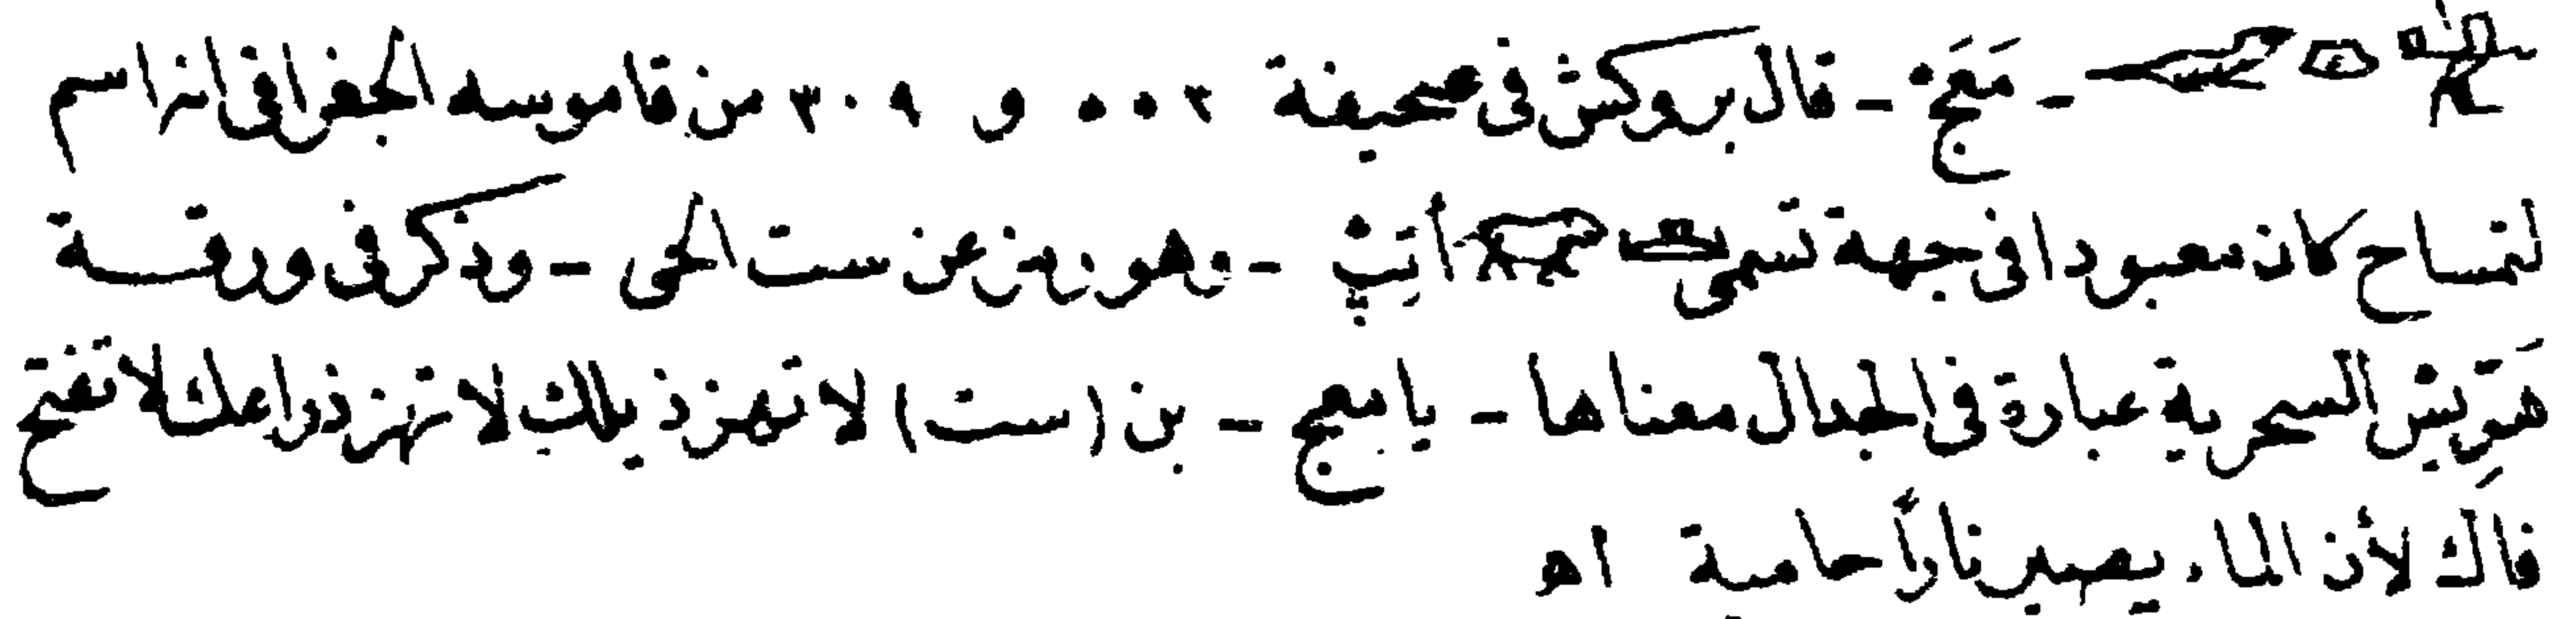 - مَعَج - قال بروكش فى صحيفة ٢٠٠ و ٣٠٩ من قاموسه الجغرافى انه اسم
لتمساح كان معبودا فى جهة تسمى أتپث - وهو رمز عن ست الحى - وذكر فى ورقــة
هَرِيس السحرية عبارة فى الجدال معناها - يا معج - بن (ست) لا تهز ذيلك لا تهز ذراعك لا تفتح
فاك لأن الماء يصير ناراً حامية اه